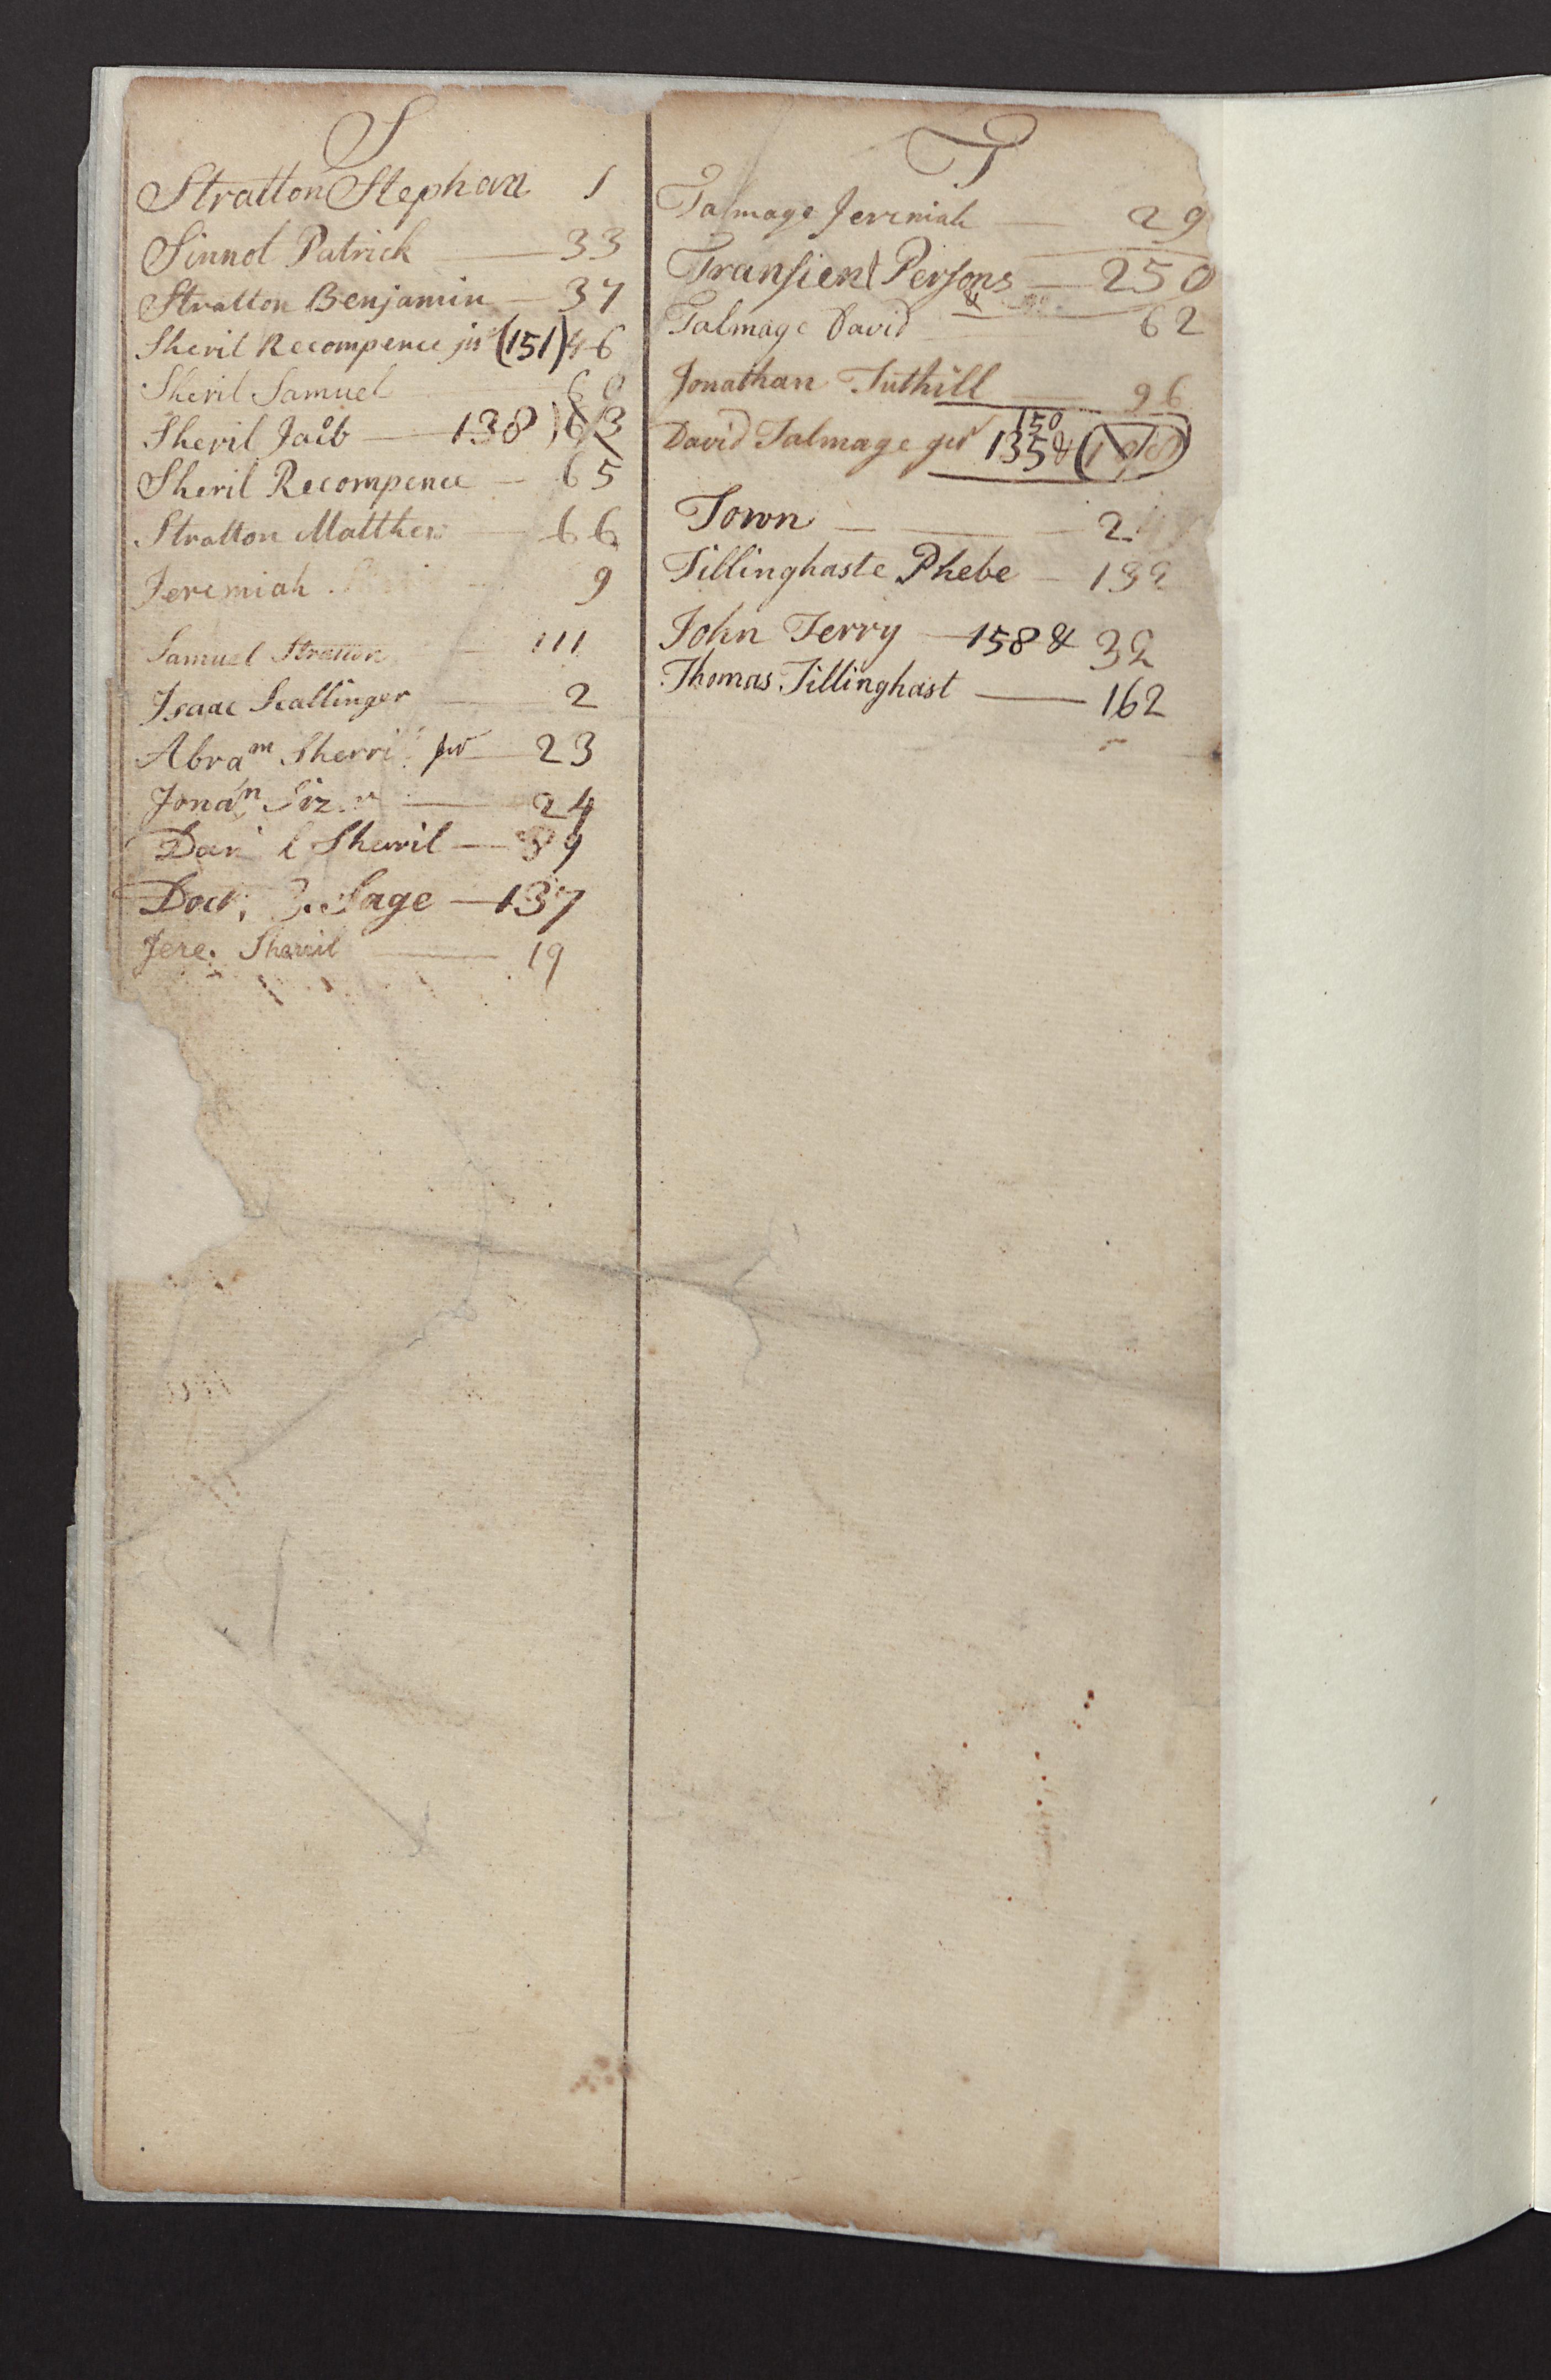 S
Stratton Stephen 1
Sinnol Patrick — 33
Stratton Benjamin — 37
Sheril Recompence jur (151) 46
Sheril Samuel 60
Sheril Jacb — 138) 63
Sheril Recompence — 65
Stratton Matthew — 66
Jeremiah 9
Samuel Stratton — 111
Isaac Scallinger — 2
Abram Sherril jur — 23
Jonan — 24
Sherril — 39
Docr. Sage — 137
Jere. Sherril — 19
T
Talmage Jeremiah — 29
Transient Persons — 250
Talmage David & — 62
Jonathan Tuthill — 96
David Talmage jur 150 135 &
Town — 2
Tillinghaste Phebe —
John Terry — 158 & 32
Thomas Tillinghast — 162